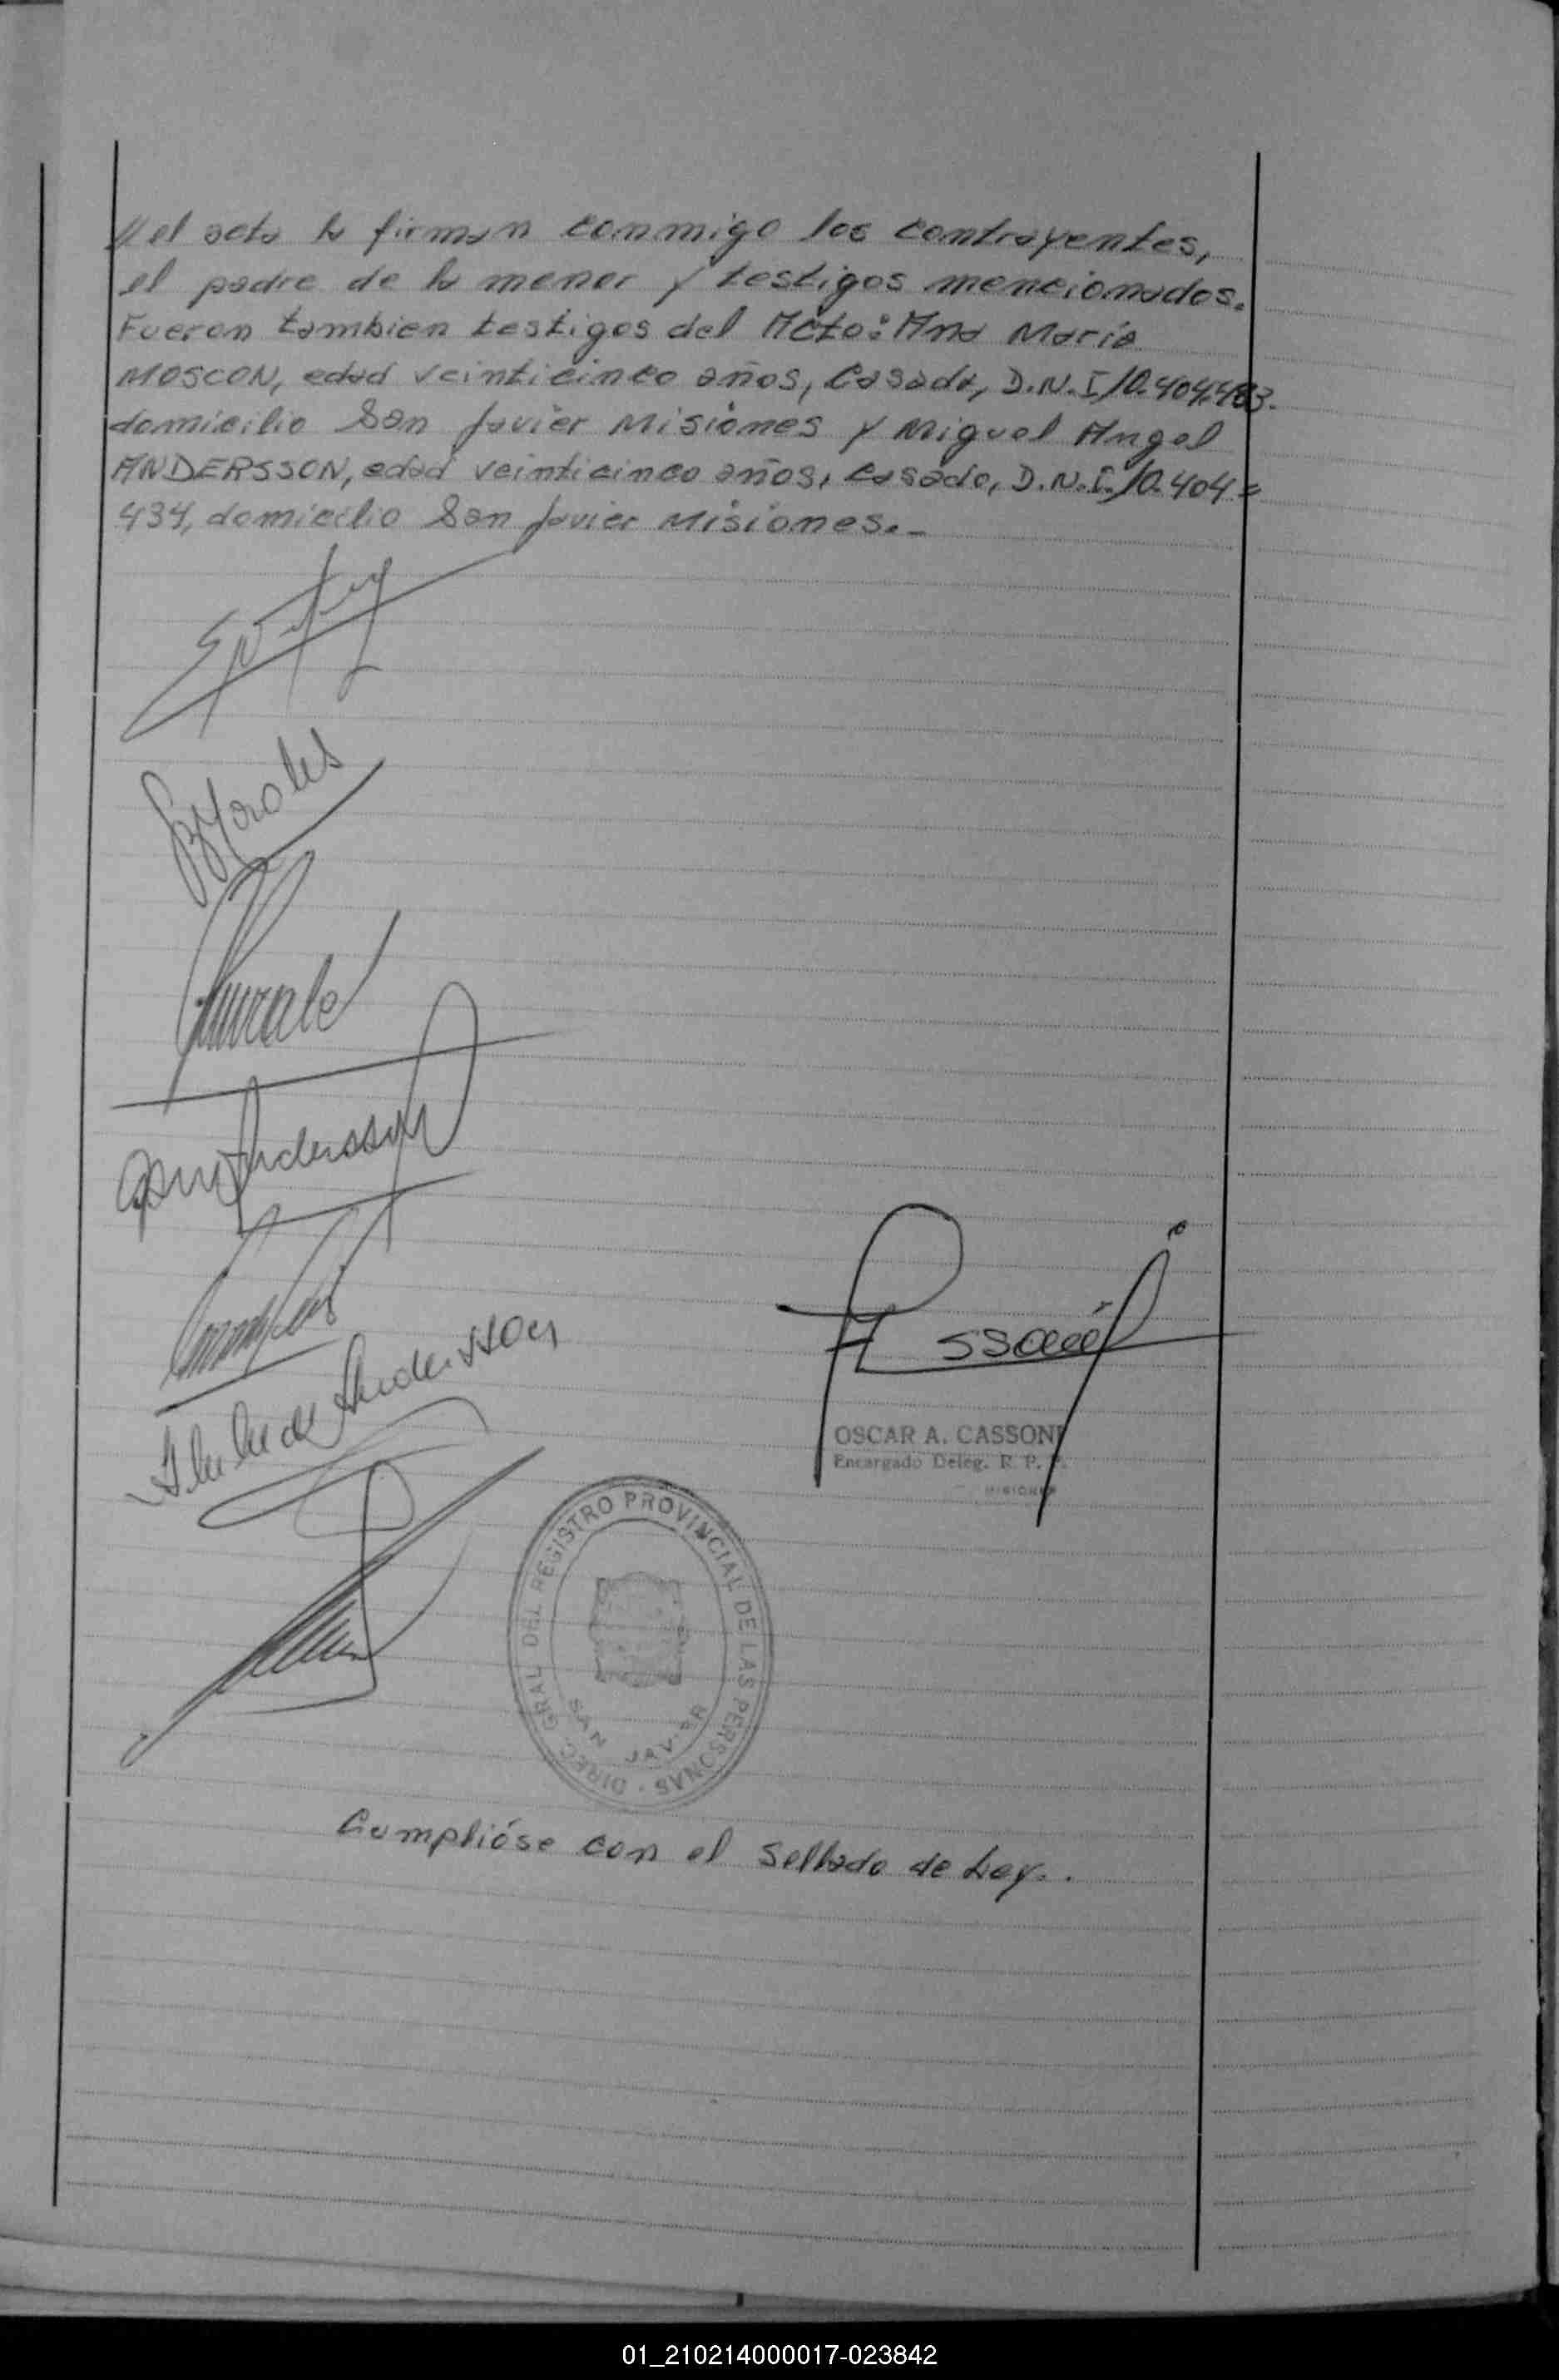 //el acta la firman conmmigo los contrayentes,
el padre de la menor y testigos mencionados.
Fueron tambien testigos del Acto: Ana María
MOSCON, edad veinticinco años, casada, D.N.I 10.404.483.
domicilio San Javier Misiones y Miguel Angel
ANDERSSON, edad veinticinco años, casado, D.N.I. 10.404=
434, domicilio San Javier Misiones.-
Morales
Andersson
de Andersson
OSCAR A. CASSONI
Encargado Deleg. R. P.
MISIONES
DIREC. GRAL DEL REGISTRO PROVINCIAL DE LAS PERSONAS
SAN JAVIER
Cumplióse con el Sellado de Ley..
01_210214000017-023842